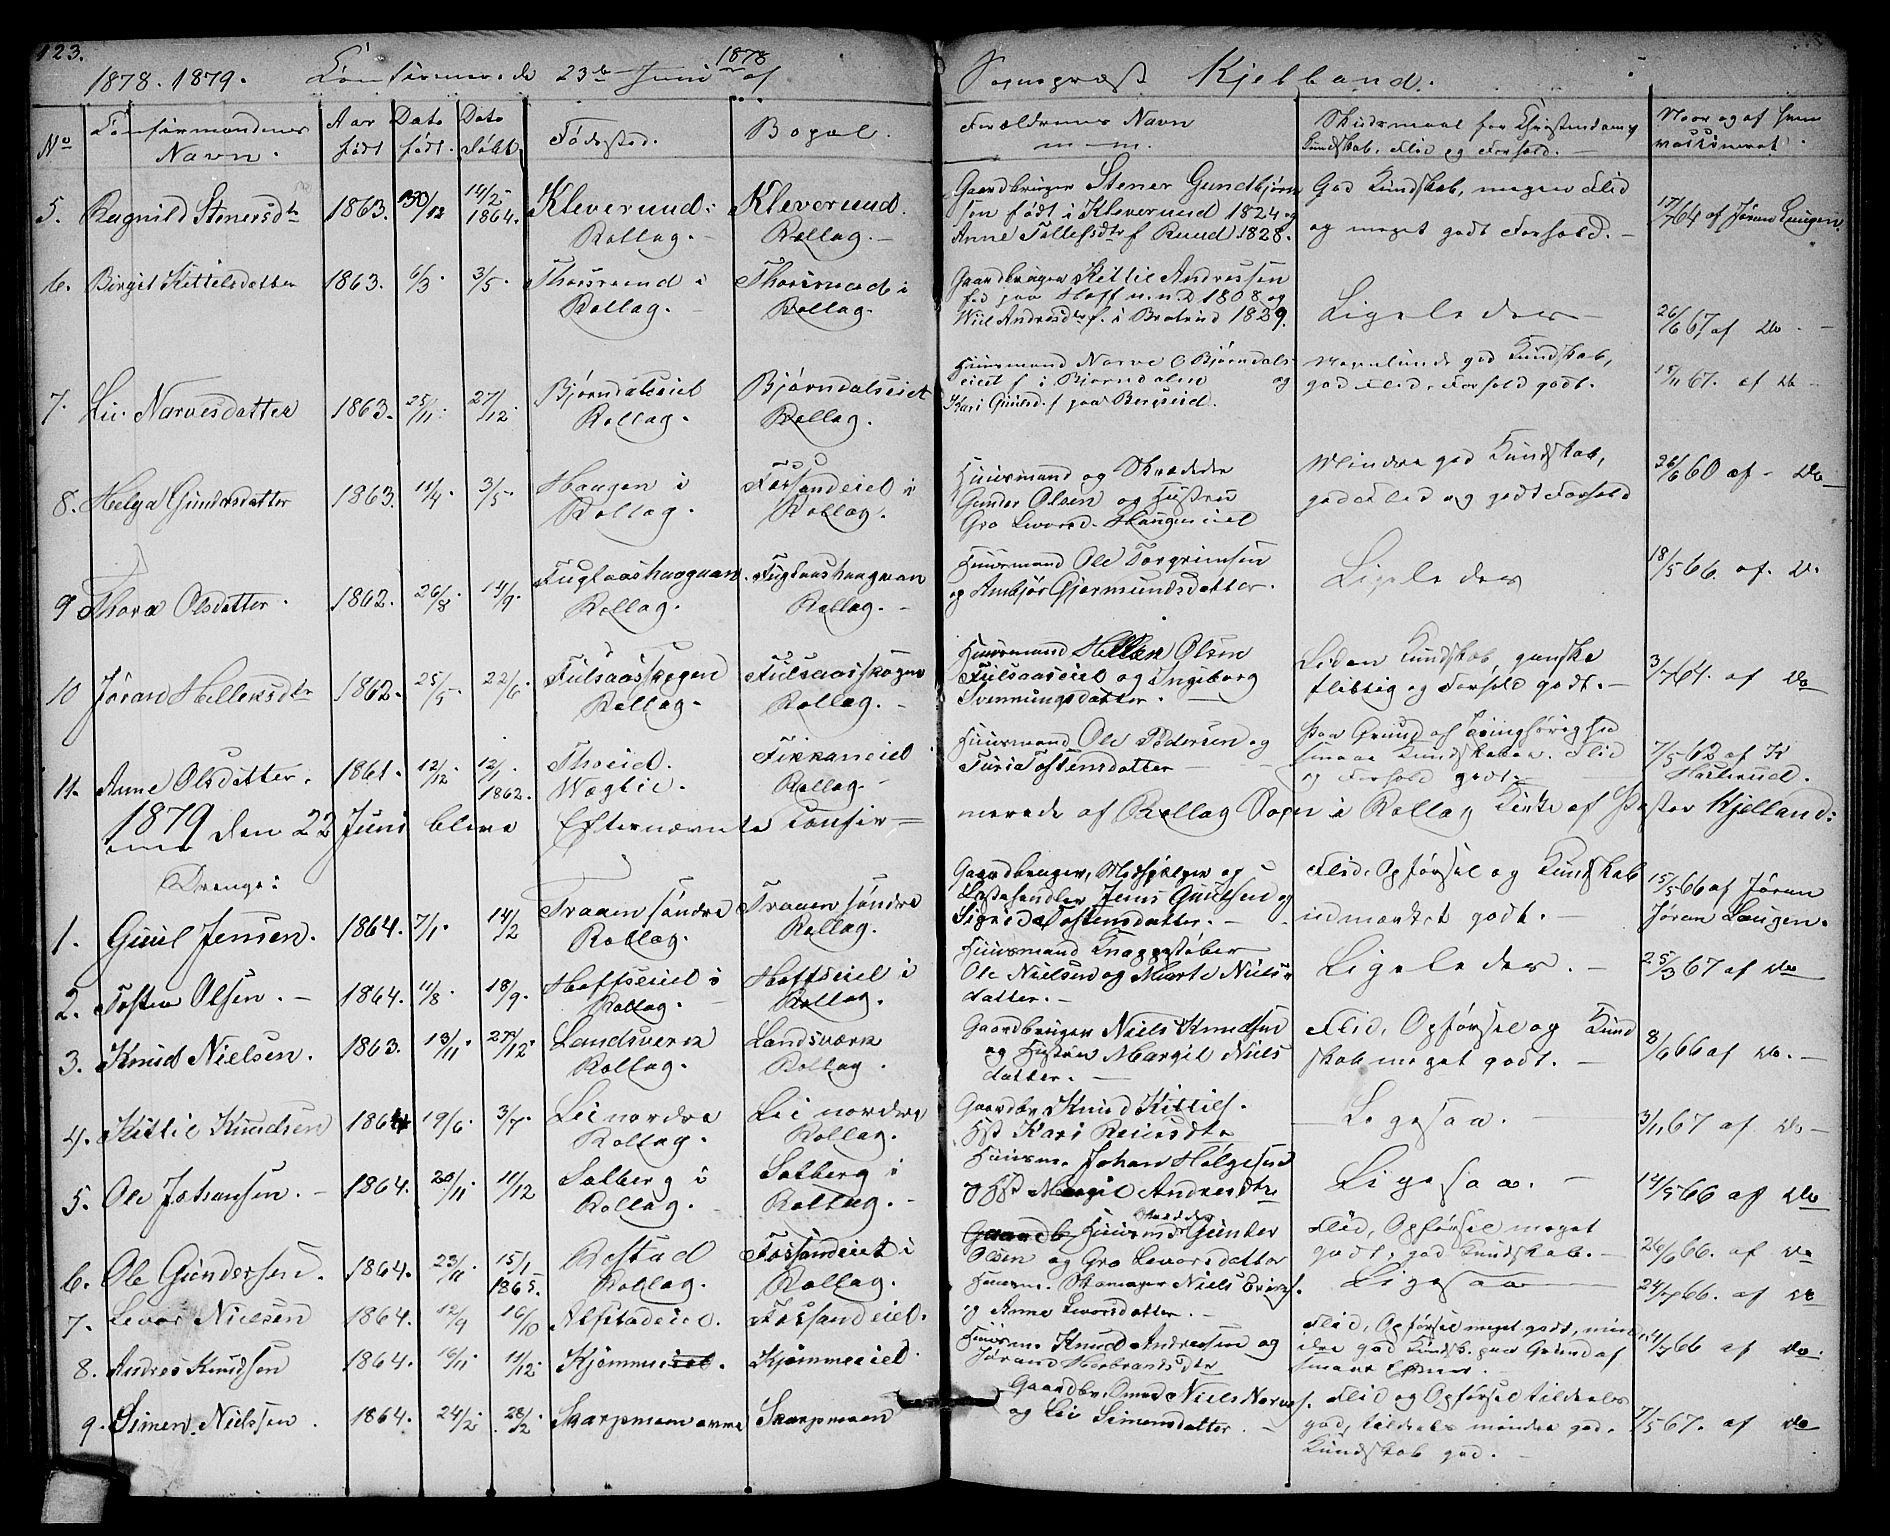 123.
1878. 1879. Confirmerede 23de Juni 1878 af Sognepræst Kjelland.
No Confirmandernes Navn. Aar født Dato født. Dato Døbt Fødested. Bopæl. Forældrenes Navn m. m. Skudsmaal for Christendoms Kundskab, Flid og Forhold. Naar og af hvem vaccineret.
5. Ragnild Stenersdtr 1863. 30/12 14/2 1864. Kleverund. Rollag. Kleverund. Rollag. Gaardbruger Stener Gundbjørnsen født i Kleverund 1824 og Anne Tollefsdtr f Ruud 1828. God Kundskab, megen Flid og meget godt Forhold. 17/7 64 af Jøran Laugen
6. Birgit Kittelsdatter 1863. 6/3 3/5. Thorsrud i Rollag. Thorsrud i Rollag. Gaardbruger Kittil Andressen fød paa Hoff 1808 og Andresdtr f. i Bratrud 1829. Ligeledes 26/6 67 af Do.
7. Liv Narvesdatter 1863. 25/11. 27/12. Bjørndalseiet Rollag. Bjørndalseiet Rollag. Huusmand Narve O Bjørndalseiet f i Bjørndalen og Kari Gunnsd. f paa Bergseid. Navnlunde god Kundskab, god Flid, Forhold godt. 15/11 67. af Do
8. Helga Gundersdatter 1863. 11/4. 3/5. Haugen i Rollag. Fossandeiet i Rollag. Huusmand og Skræder Gunder Olsen og Hustru Gro Levorsd. Haugeseiet Mindre god Kundskab, god Flid og godt Forhold 26/6 60 af Do
9 Thora Olsdatter. 1862. 26/8. 14/9. Fuglaashaugan. Rollag. Fuglaashaugan Rollag. Huusmand Ole Torgrimsen og Ambjør Gjermundsdatter. Ligeledes 18/5 66. af. Do.
10 Jøran Hellensdtr 1862. 25/5. 22/6. Fulsaasskogen Rollag. Fulsaasskogen Rollag. Huusmand Hellen Olsen Fulsaaseiet og Ingeborg Svennungsdatter. Liden Kundskab, ganske flittig og Forhold godt. 3/7 64. af Do
11. Anne Olsdatter. 1861. 12/12. 12/1. 1862. Thoeid. Væglie. Fikkaneiet Rollag. Huusmand Ole Pedersen og Turi Tostensdatter Paa Grund af Tunghørighed smaae Kundskaber. Flid og Forhold godt. 7/5 62 af H Hasterud.
1879 den 22 Juni bleve Efternævnte Confirmerede af Rollag Sogn i Rollag Kirke af Pastor Kjelland:
Drenge:
1. Guul Jensen. 1864. 7/1. 14/2 Traaen søndre Rollag. Traaen søndre Rollag. Gaardbruger, Medhjælper og Lensmand Jens Guulsen og Sigrid Tostensdatter. Flid, Opførsel og Kundskab udmærket godt. 15/5 66 af Jøran Jøran Laugen.
2. Tosten Olsen. 1864. 11/8. 18/9. Hoffseiet i Rollag. Hoffseiet i Rollag. Huusmand Knappestøber Ole Nielsen og Marte Nielsdatter. Ligeledes. 25/3 67 af Do
3. Knud Nielsen. 1863. 13/11. 27/12. Landsverk Rollag. Landsværk Rollag. Gaardbruger Niels Knudsen og Hustru Margit Nielsdatter. Flid, Opførsel og Kundskab meget godt. 8/6 66 af Do.
4. Kittil Knudsen 1864 19/6. 3/7. Lei nordre Rollag. Lei nordre Rollag. Gaardbr. Knud Kittils. Hst Kari Reiersdtr Ligesaa. 3/11 67 af Do
5. Ole Johansen. 1864. 20/11. 11/12 Solberg i Rollag. Solberg i Rollag. Huusm. Johan Helgesen og Hst Margit Andresdtr Ligesaa. 14/5 66 af Do
6. Ole Gundersen. 1864. 23/11 15/1 1865. Bostad Rollag. Fossandeiet i Rollag. Gaardb Huusmd Skræder Gunder Olsen og Gro Levorsdatter Flid, Opførsel meget godt, god Kundskab. 26/6 66. af Do
7. Levor Nielsen 1864. 12/9 16/10 Alfstadeied. Fossandeiet. Huusm. Skomager Niels Eriks. og Anne Levorsdatter. Ligesaa 24/7 66. af Do
8. Andres Knudsen 1864. 16/11 11/12. Kjømmeiet. Kjømmeeiet. Huusm. Knud Andressen og Jørand Herbrandsdtr Flid, Opførsel meget godt, mindre god Kundsk. paa Grund af smaae Evner. 4/7 66 af Do.
9. Simen Nielsen. 1864. 24/2. 28/2. Skarpmoen øvre Skarpmoen Gaardbr. Niels Narves. og Liv Simensdatter. Flid og Opførsel tildeels god, tildeels mindre god. Kundskab god. 7/5 67. af Do